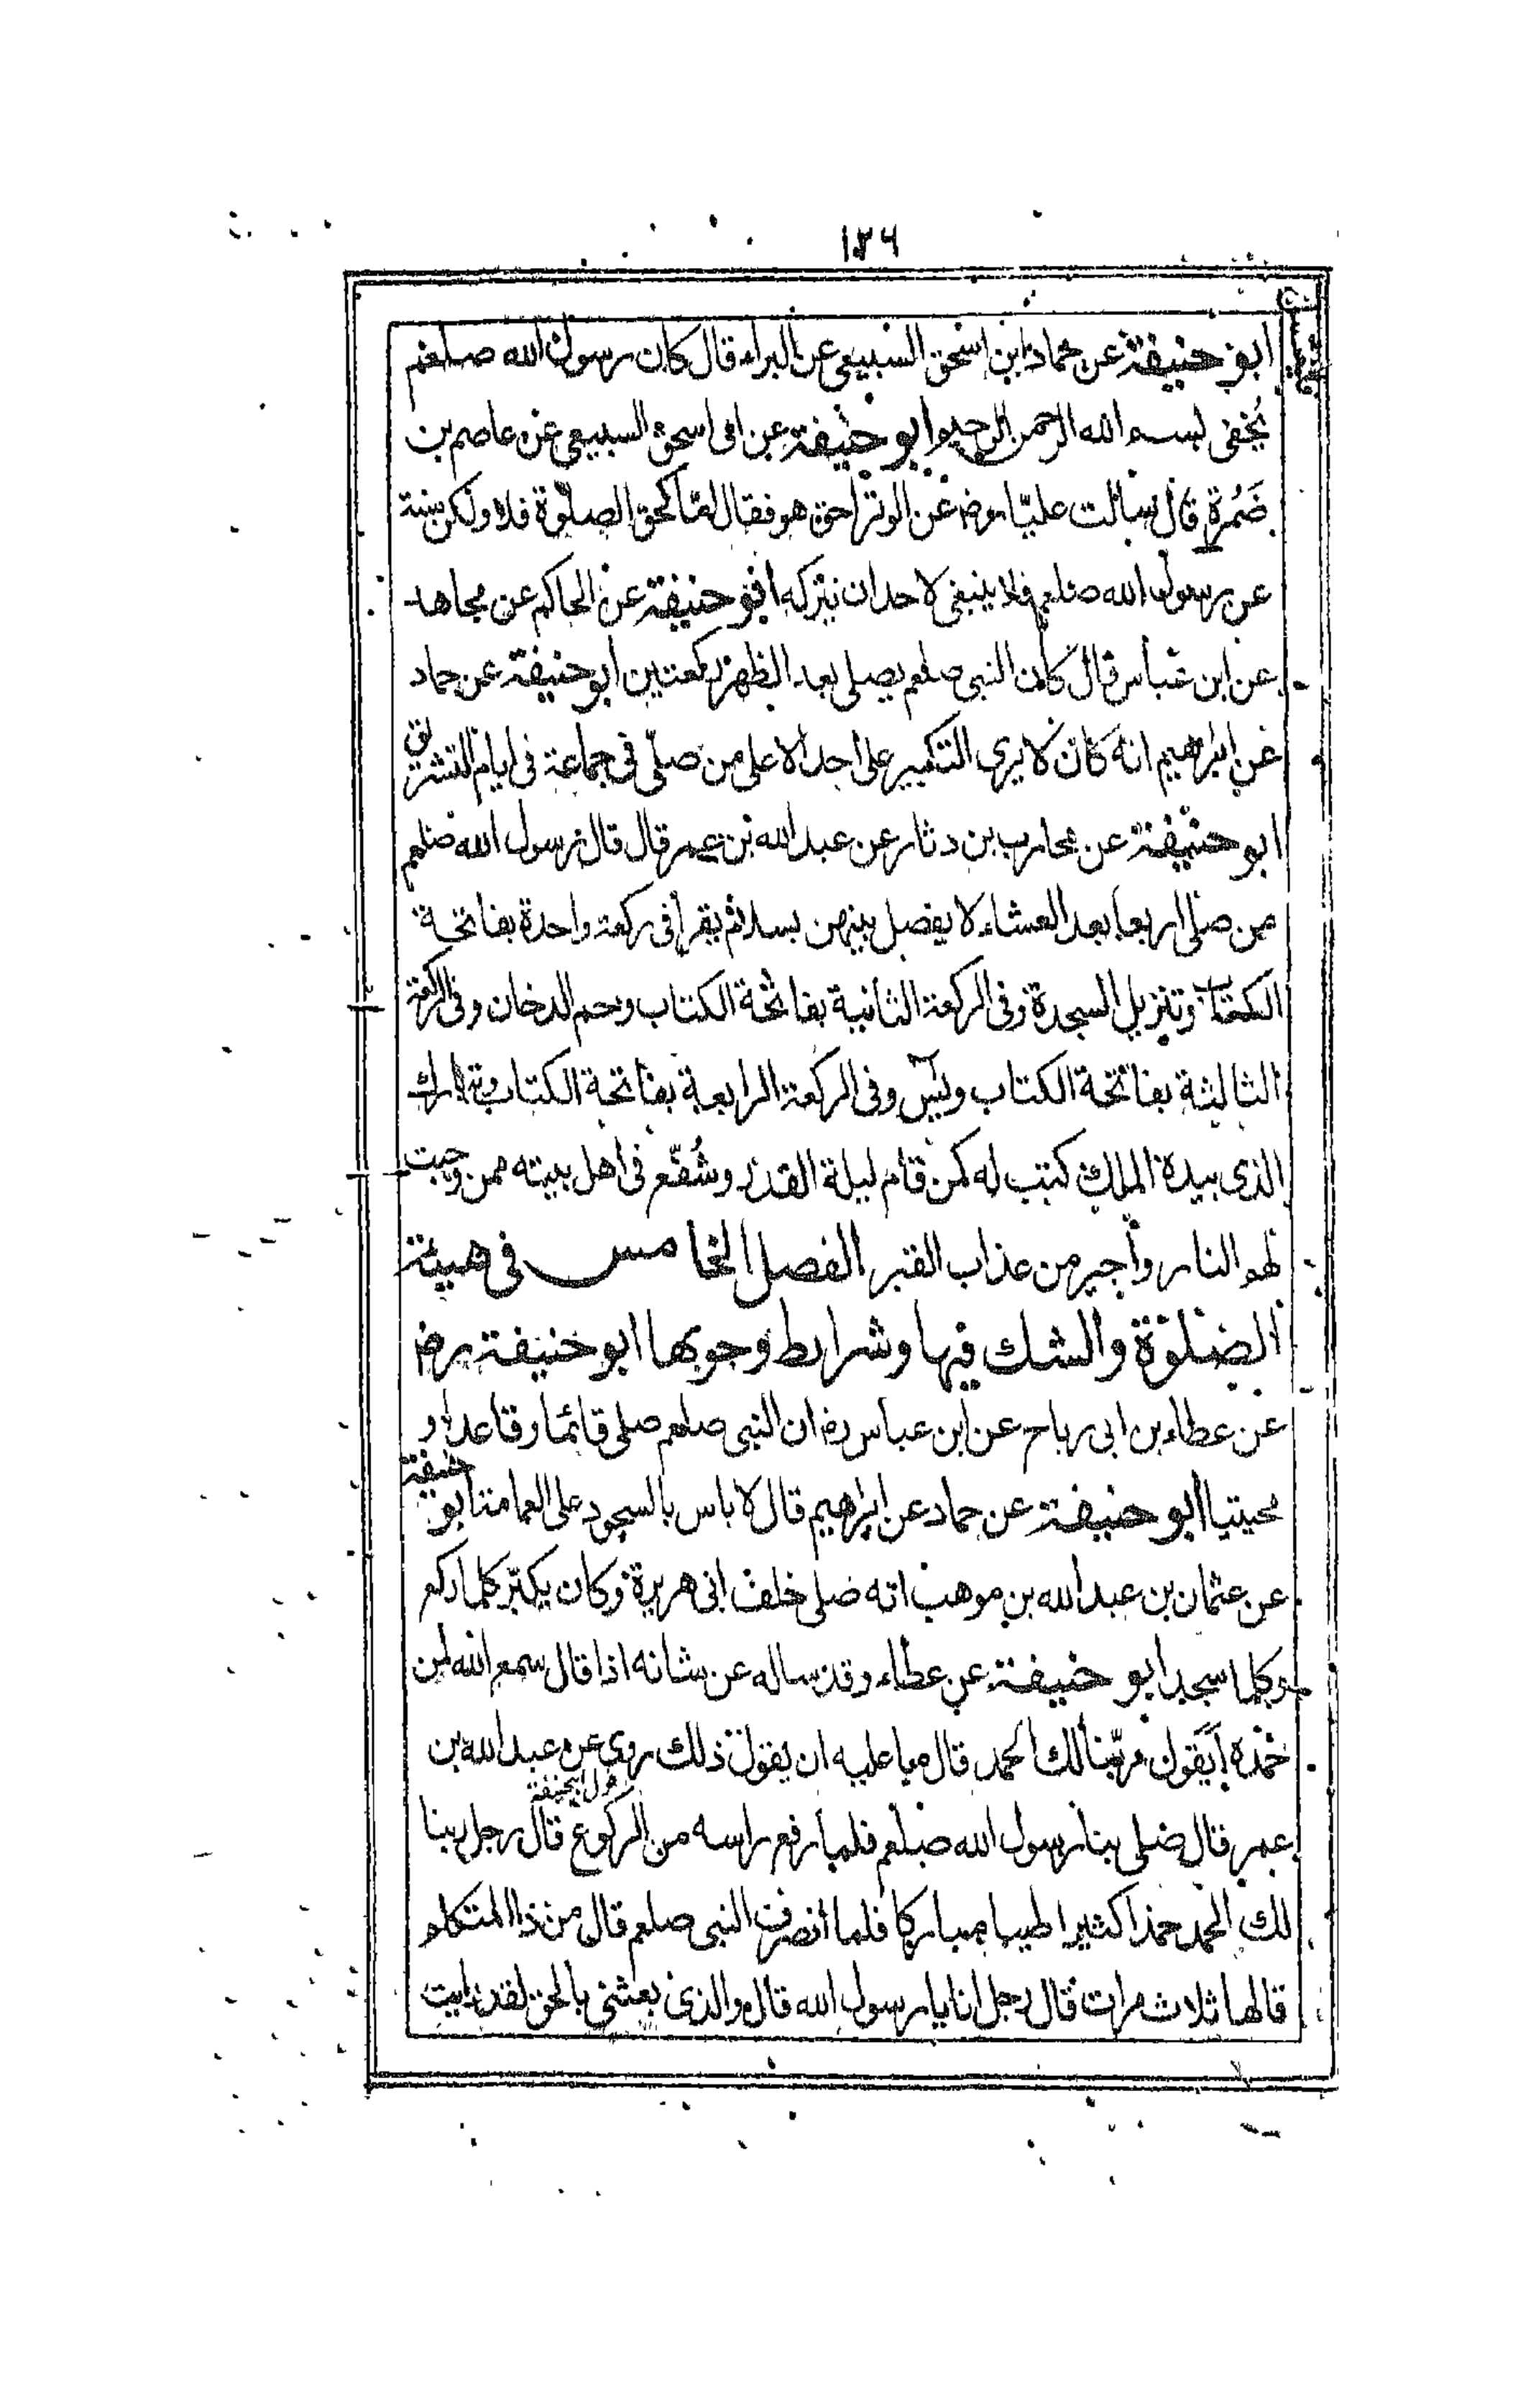 ١٢٦
ابو حنيفة عن حماد ابن اسحق السبيعى عن البراء قال كان رسول الله صلعم
يُخفى بسم الله الرحمن الرحيم ابو حنيفة عن ابى اسحق السبيعى عن عاصم بن
ضَمُرة قال سالت عليّا رض عن الوتر احق هو فقال امّا كحق الصلوة فلا ولكن سنة
عن رسول الله صلعم فلا ينبغى لاحد ان يتركه ابو حنيفة عن الحاكم عن مجاهد
عن ابن عباس قال كان النبى صلعم يصلى بعد الظهر ركعتين ابو حنيفة عن حماد
عن ابرهيم انه كان لا يرى التكبير على احد الا على من صلّى فى جماعة فى ايام التشريق
ابو حنيفة عن محارب بن دثار عن عبد الله بن عمر قال قال رسول الله صلعم
من صلى اربعا بعد العشاء لا يفصل بينهن بسلام يقرأ فى ركعة واحدة بفاتحة
الكتاب وتنزيل السجدة وفى الركعة الثانية بفاتحة الكتاب وحم الدخان وفى الركعة
الثالثة بفاتحة الكتاب ويس وفى الركعة الرابعة بفاتحة الكتاب وتبارك
الذى بيده الملك كتب له كمن قام ليلة القدر وشُفّع فى اهل بيته ممن وجبت
لهم النار واجير من عذاب القبر الفصل الخامس فى هيئة
الصلوة والشك فيها وشرايط وجوبها ابو حنيفة رض
عن عطاء بن ابى رباح عن ابن عباس رض ان النبى صلعم صلى قائما وقاعدا و
محتبيا ابو حنيفة عن حماد عن ابرهيم قال لا باس بالسجود على العمامة ابو حنيفة
عن عثمان بن عبد الله بن موهب انه صلى خلف ابى هريرة وكان يكبّر كلما ركع
وكلما سجد ابو حنيفة عن عطاء وقد ساله عن شانه اذا قال سمع الله لمن
حمده أيَقول ربّنا لك الحمد قال ما عليه ان يقول ذلك روى عن عبد الله بن
عمر قال صلى بنا رسول الله صلعم فلما رفع راسه من الركوع قال رجل ربنا
لك الحمد حمدا كثيرا طيبا مباركا فلما انصرف النبى صلعم قال من ذا المتكلم
قالها ثلاث مرات قال رجل انا يا رسول الله قال والذى بعثنى بالحق لقد رايت